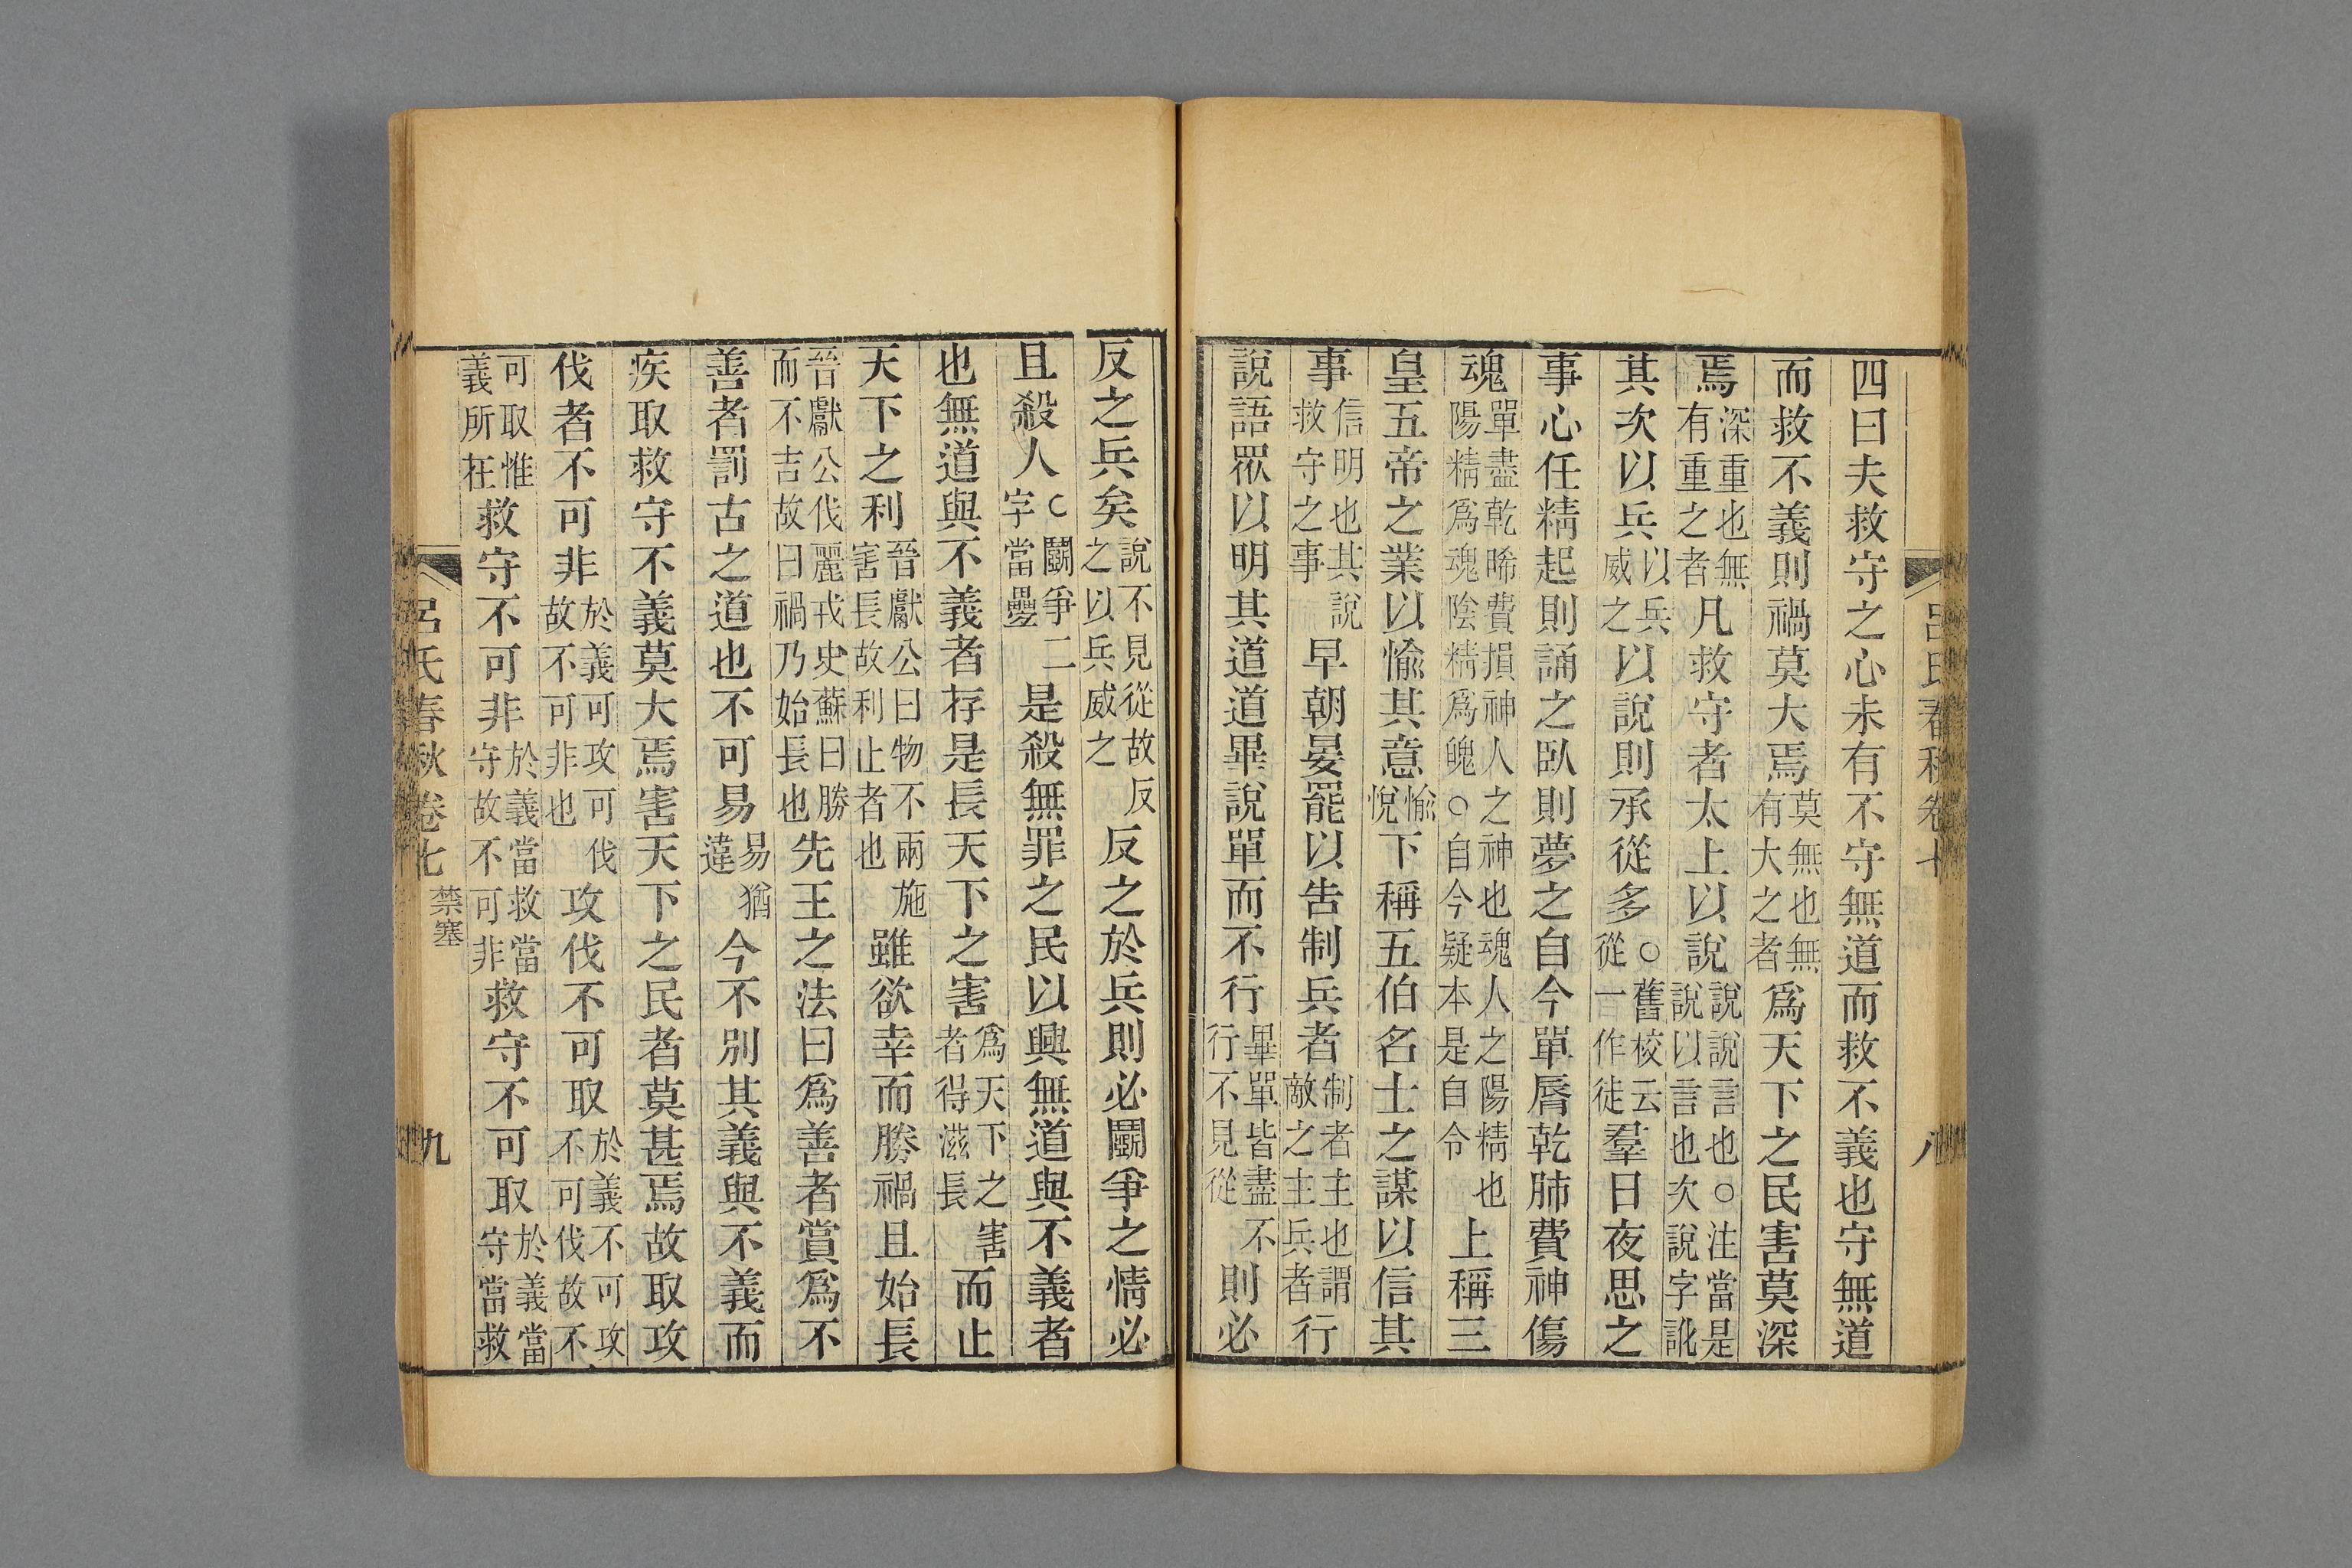 四曰夫救守之心未有不守無道而救不義也守無道
而救不義則禍莫大焉莫無也無有大之者爲天下之民害莫深
焉深重也無有重之者凡救守者太上以說說說言也○注當是說以言也次說字訛
其次以兵以兵威之以說則承從多○舊校云從一作徒羣日夜思之
事心任精起則誦之臥則夢之自今單脣乾肺費神傷
魂單盡乾晞費損神人之神也魂人之陽精也陽精爲魂陰精爲魄○自今疑本是自令上稱三
皇五帝之業以愉其意愉悅下稱五伯名士之謀以信其
事信明也其說救守之事早朝晏罷以告制兵者制者主也謂敵之主兵者行
說語眾以明其道道畢說單而不行畢單皆盡不行不見從則必
呂氏春秋卷七 八
反之兵矣說不見從故反之以兵威之反之於兵則必鬭爭之情必
且殺人○鬭爭二字當疊是殺無罪之民以興無道與不義者
也無道與不義者存是長天下之害爲天下之害者得滋長而止
天下之利晉獻公曰物不兩施害長故利止者也雖欲幸而勝禍且始長
晉獻公伐麗戎史蘇曰勝而不吉故曰禍乃始長也先王之法曰爲善者賞爲不
善者罰古之道也不可易易猶違今不別其義與不義而
疾取救守不義莫大焉害天下之民者莫甚焉故取攻
伐者不可非於義可攻可伐故不可非也攻伐不可取於義不可攻不可伐故不
可取惟義所在救守不可非於義當救當守故不可非救守不可取於義當守當救
呂氏春秋卷七 禁塞 九